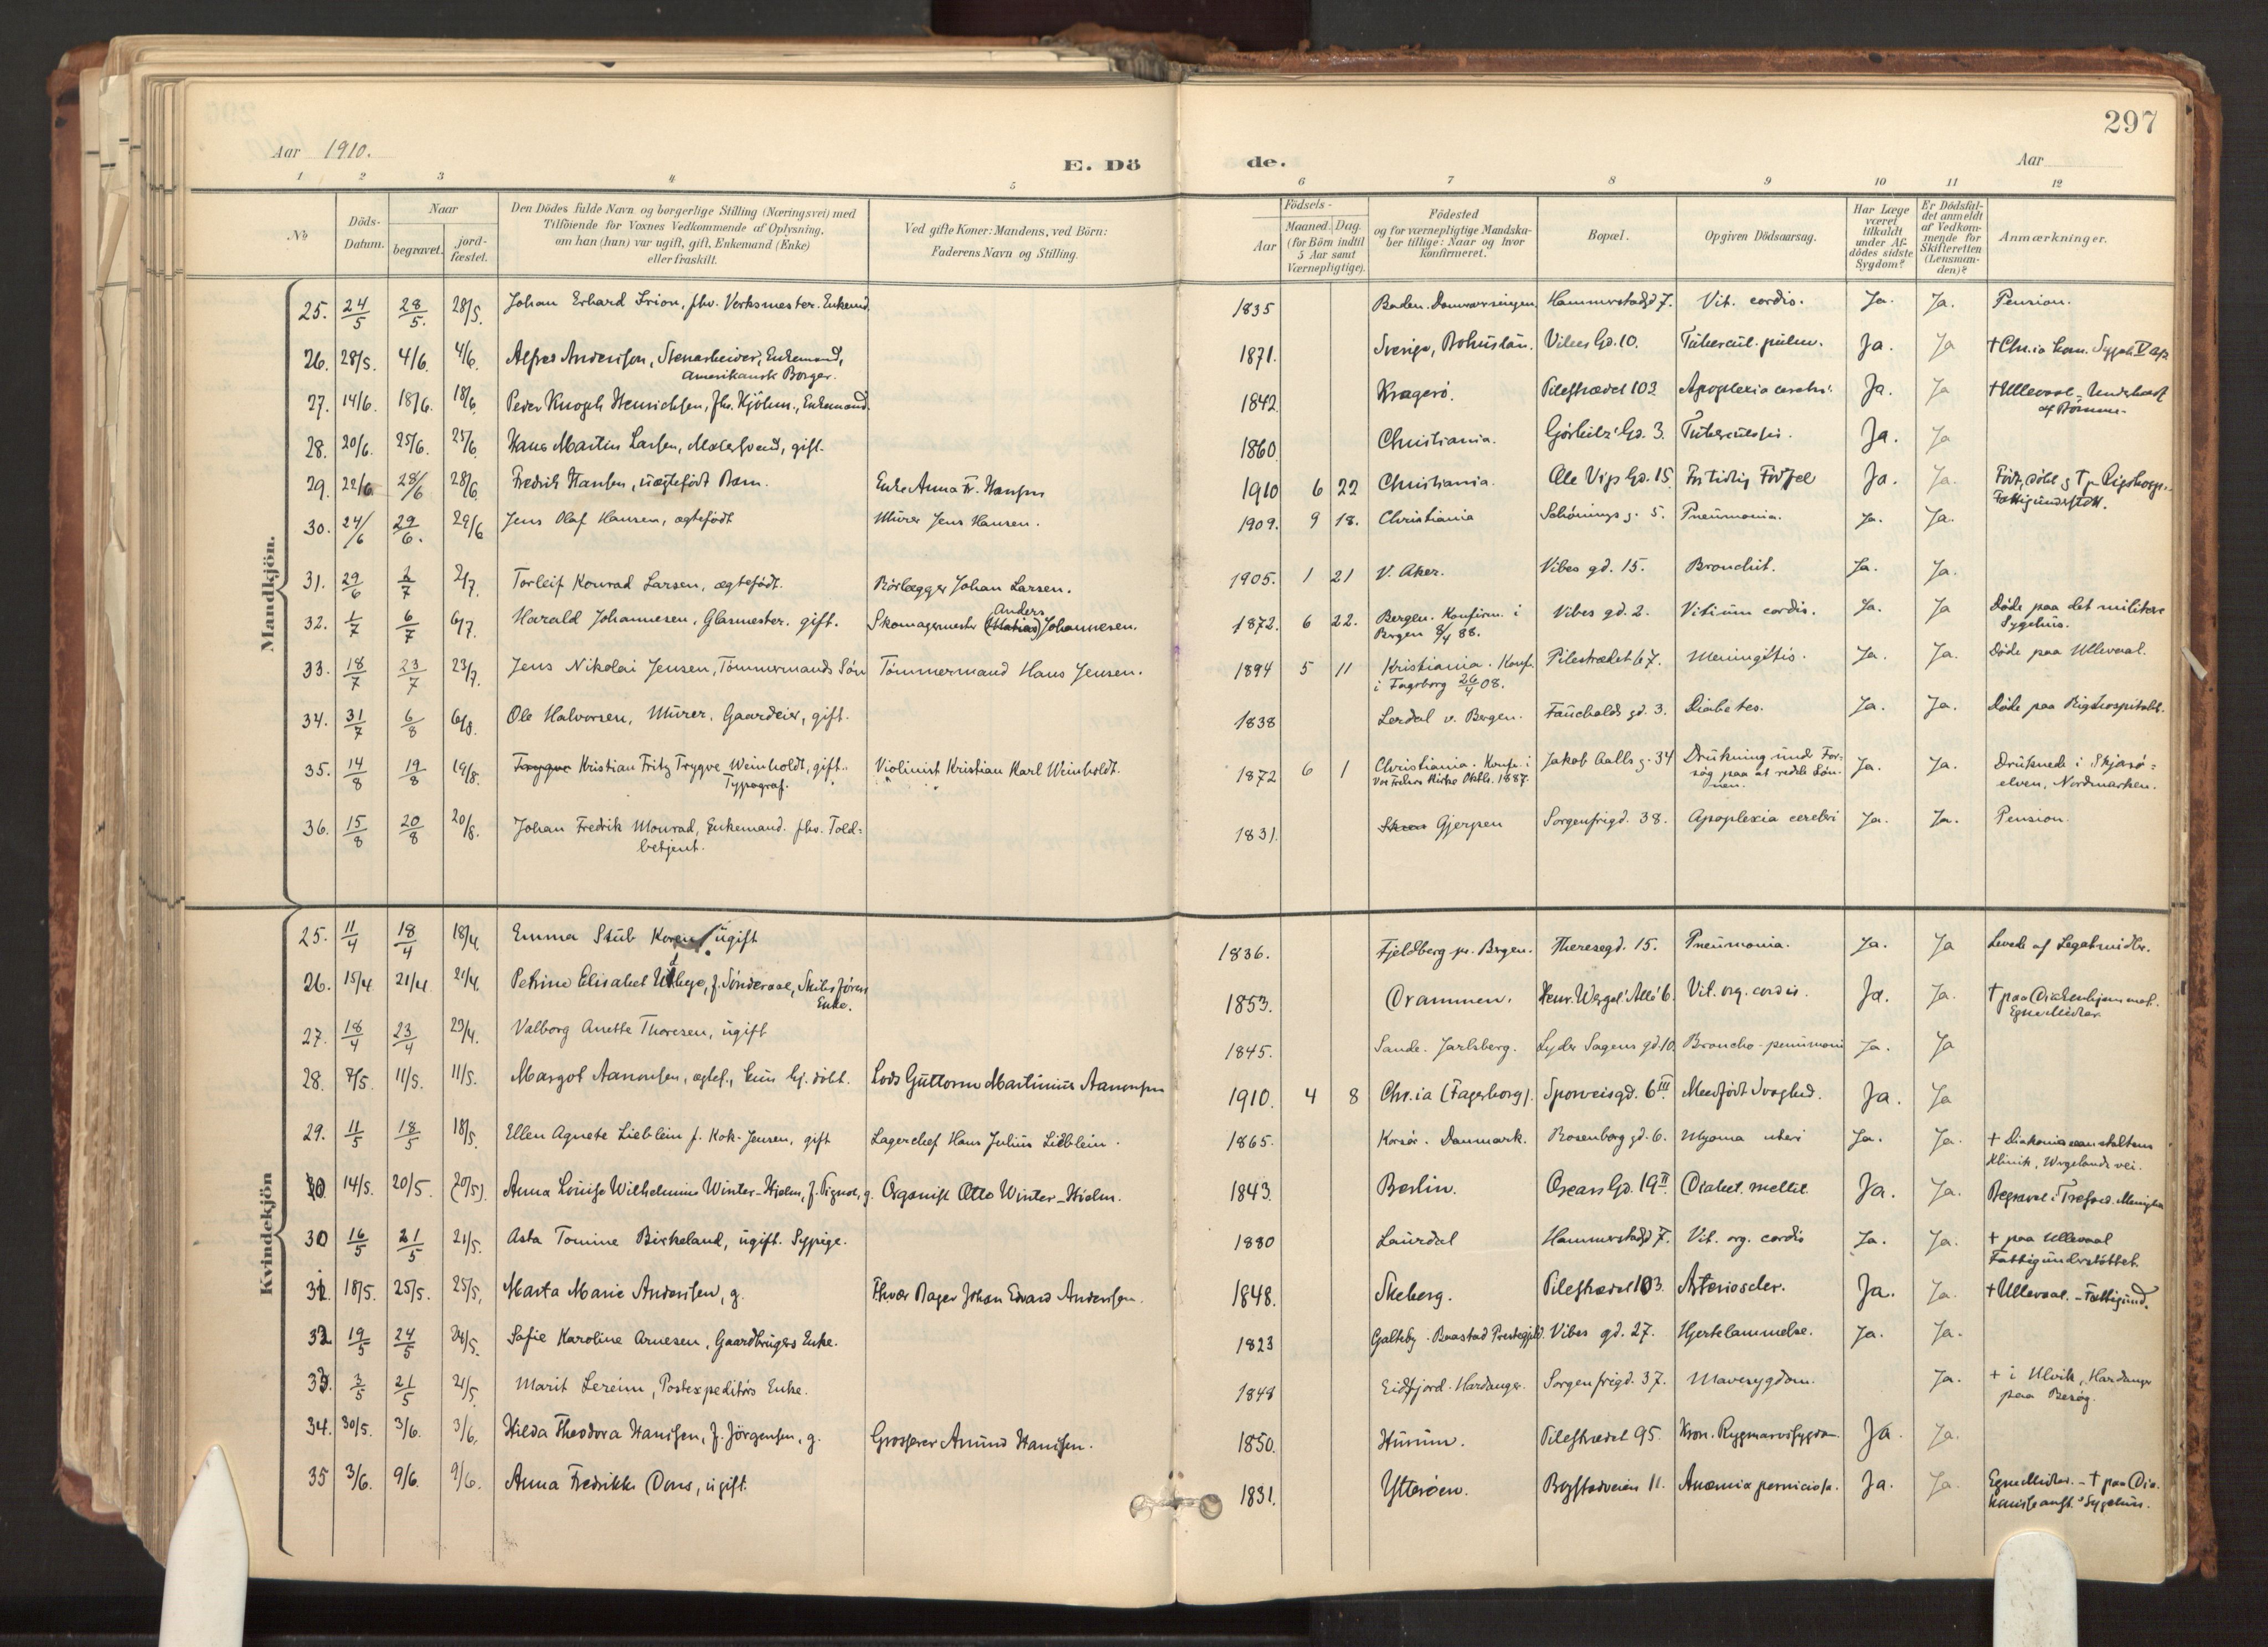 297
Aar 1910.
E. Dö
de.
Aar
1 2 3 4 5 6 7 8 9 10 11 12
No
Döds-
Datum.
Naar
begravet.
jord-
fæstet.
Den Dödes fulde Navn og borgerlige Stilling (Næringsvei) med
Tilföiende for Voxnes Vedkommende af Oplysning,
om han (hun) var ugift, gift, Enkemand (Enke)
eller fraskilt.
Ved gifte Koner: Mandens, ved Börn:
Faderens Navn og Stilling.
Födsels-
Aar
Maaned. Dag.
(for Börn indtil
5 Aar samt
Værnepligtige).
Födested
og for værnepligtige Mandska-
ber tillige: Naar og hvor
konfirmeret.
Bopæl.
Opgiven Dödsaarsag.
Har Læge
været
tilkaldt
under Af-
dödes sidste
Sygdom?
Er Dödsfal-
det anmeldt
af Vedkom-
mende for
Skifteretten
(Lensman-
den)?
Anmærkninger.
Mandkjön.
25. 24/5 28/5. 28/5. Johan Erhard Irion, fhv. Verksmester. Enkemd. 1835 Baden. Hammerstadgd 7. Vit. cordis. Ja. Ja. Pension.
26. 28/5. 4/6. 4/6. Alfred Andersen, Stenarbeider, Enkemand, 1871. Sverige, Bohuslän. Vibes Gd. 10. Tubercul. pulm. Ja. Ja +Chr.ia kom. Sygeh. V afd
Amerikansk Borger.
27. 14/6. 18/6. 18/6. Peder Henrichsen, fhv. Enkemand. 1842. Kragerö. Pilestrædet 103 Apoplexia cerebri. Ja. Ja +Ullevaal - Underholdt
af Börnene-
28. 20/6. 25/6. 25/6. Hans Martin Larsen, Malersvend, gift. 1860. Christiania. Görbitz' Gd. 3. Tuberculosis. Ja. Ja
29. 22/6. 28/6 28/6. Fredrik Hansen, uægtefödt Barn. Enke Anna Fr. Hansen 1910 6 22 Christiania. Ole Vigs Gd. 15. For tidlig Födsel Ja. Ja. Födt, döbt & + p. Rigshosp.
Fattigunderstött.
30. 24/6 29/6. 29/6 Jens Olaf Hansen, ægtefödt Murer Jens Hansen. 1909. 9 18. Christiania Schönings g. 5. Pneumonia. Ja. Ja.
31. 29/6 2/7 2/7. Torleif Konrad Larsen, ægtefödt. Rörlægger Johan Larsen. 1905. 1 21 V. Aker. Vibes gd. 15. Bronchit. Ja. Ja.
Anders
32. 1/7 6/7 6/7. Harald Johannesen, Glasmester. gift. Skomagermester (Matias) Johannesen. 1872. 6 22. Bergen. Konfirm. i Vibes gd. 2. Vitium cordis. Ja. Ja Döde paa det militære
Bergen 8/4 88. Sygehus.
33. 18/7 23/7 23/7. Jens Nikolai Jensen, Tömmermands Sön Tömmermand Hans Jensen. 1894 5 11 Kristiania. Konf. Pilestrædet 67. Meningitis. Ja. Ja. Döde paa Ullevaal.
i Fagerborg 26/4 08.
34. 31/7 6/8 6/8. Ole Halvorsen, Murer, Gaardeier, gift. 1838 Lerdal v. Bergen. Fauchalds gd. 3. Diabetes. Ja. Ja. Döde paa Rigshospitalet.
35. 14/8 19/8 19/8. Trygve Kristian Fritz Trygve Weinholdt, gift. Violinist Kristian Karl Weinholdt. 1872 6 1 Christiania. Konf. i Jakob Aalls g. 34 Drukning under For- Ja. Ja. Druknede i Skjærsö-
Typograf. Vor Frelsers Kirke Oktbr. 1887. sög paa at redde Sön- elven, Nordmarken.
nen.
36. 15/8 20/8 20/8. Johan Fredrik Monrad, Enkemand. fhv. Told- 1831. Skien Gjerpen Sorgenfrigd. 38. Apoplexia cerebri Ja. Ja. Pension
betjent.
Kvindekjön
25. 11/4 18/4 18/4 Emma Stub Koren, ugift 1836. Fjeldberg pr. Bergen. Theresegd. 15. Pneumonia. Ja. Ja Levede af Legatmidler.
26. 15/4. 21/4 21/4. Petrine Elisabet f. Sönderaae, Skibsförers 1853. Drammen. Henr. Wergel' Allé 6. Vit. org. cordis. Ja. Ja. + paa Diakonhjemmet.
Enke. Egne Midler.
27. 18/4 23/4 23/4. Valborg Anette Thoresen, ugift 1845. Sande. Jarlsberg. Lyder Sagens gd. 10. Broncho-pneumoni Ja. Ja
28. 7/5. 11/5. 11/5. Margot Aanonsen, ægtef., kun hj. döbt. Lods Guttorm Martinius Aanonsen 1910. 4 8 Chr.ia (Fagerborg). Sporveisgd. 6 III. Medfödt Svaghed. Ja. Ja
29. 11/5 18/5 18/5. Ellen Agnete Lieblein f. Kok-Jensen, gift Lagerchef Hans Julius Lieblein. 1865. Korsör. Danmark. Rosenborg gd. 6. Myoma uteri Ja. Ja. + Diakonisseanstaltens
Klinik, Wergelands vei.
30 14/5. 20/5. (20/5). Anna Louise Wilhelmine Winter-Hjelm, f. Pignol, g. Organist Otto Winter-Hjelm. 1843. Berlin. Oscars Gd. 19 II. Diabet. mellit. Ja. Ja. Begravet i Trefold. Menighed
30 16/5 21/5 21/5. Asta Tomine Birkeland, ugift. Sypige. 1880 Laurdal Hammerstadgd 7. Vit. org. cordis Ja. Ja. + paa Ullevaal
Fattigunderstöttet.
31. 18/5. 25/5. 25/5. Marta Marie Andersen, g. Fhvær Bager Johan Edvard Andersen. 1848. Skeberg. Pilestrædet 103. Arterioscler. Ja. Ja. +Ullevaal. - Fattigund.
32 19/5 24/5 24/5. Sofie Karoline Arnesen, Gaardbrugers Enke. 1823 Galteby. Baastad Prestegjeld. Vibes gd. 27. Hjertelammelse. Ja. Ja.
33. 3/5 21/5 21/5 Marit Lereim, Postexpeditörs Enke. 1848 Eidfjord. Hardanger. Sorgenfrigd. 37. Mavesygdom. Ja. + i Ulvik, Hardanger
paa Besög.
34. 30/5. 3/6. 3/6. Hilda Theodora Hansen, f. Jörgensen, g. Grosserer Amund Hansen. 1850. Hurum. Pilestrædet 95. Kron. Rygmarvssygdom. Ja. Ja.
35 3/6. 9/6. 9/6. Anna Fredrikke Dons, ugift. 1831. Ytteröen. Bogstadveien 11. Anæmia perniciosa. Ja. Ja. Egne Midler. - + paa Dia-
konisseanst.'s Sygehus.